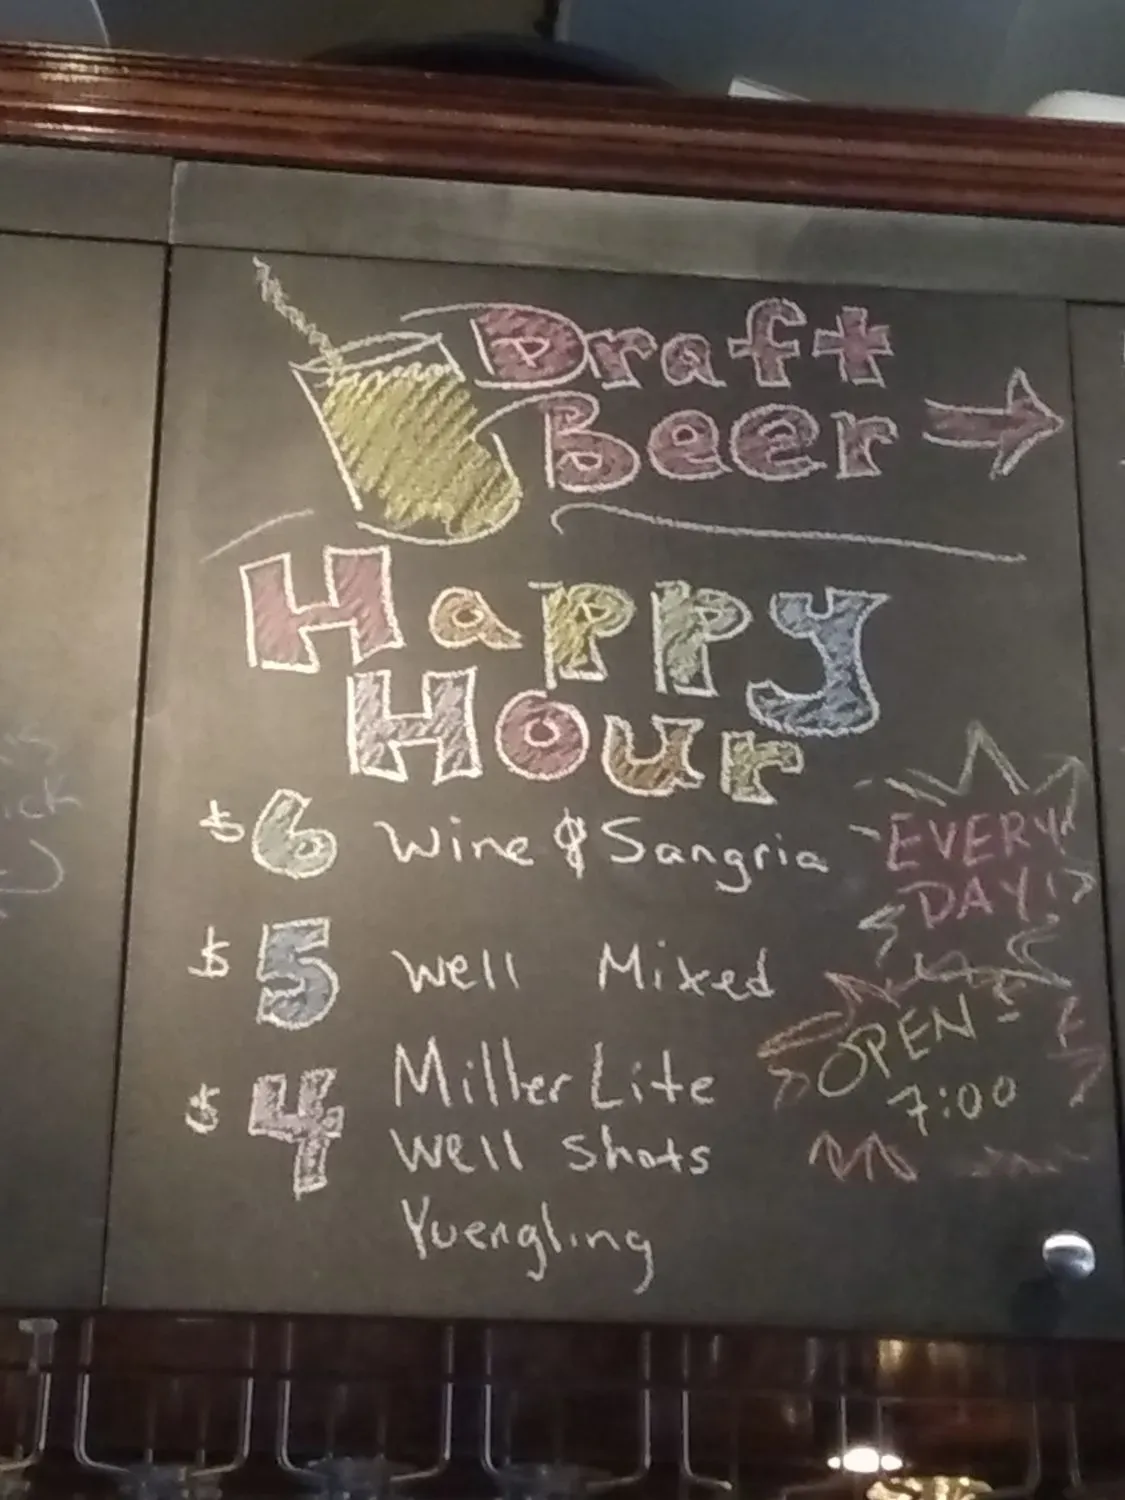 Draft
Beer
Happy
Hour
$6 Wine & Sangria
EVERY
DAY!
$5 Well Mixed
OPEN -
7:00
$4 Miller Lite
Well Shots
Yuengling
ick